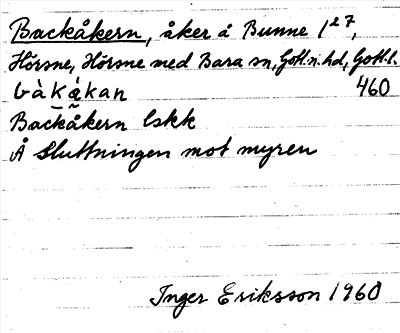 Backåkern, åker å Bunne 1²⁷,
Hörsne, Hörsne med Bara sn, Gotl. n. hd, Gotl. l.
bàkàkan 460
Backåkern lskk
Å Sluttningen mot myren
Inger Eriksson 1960